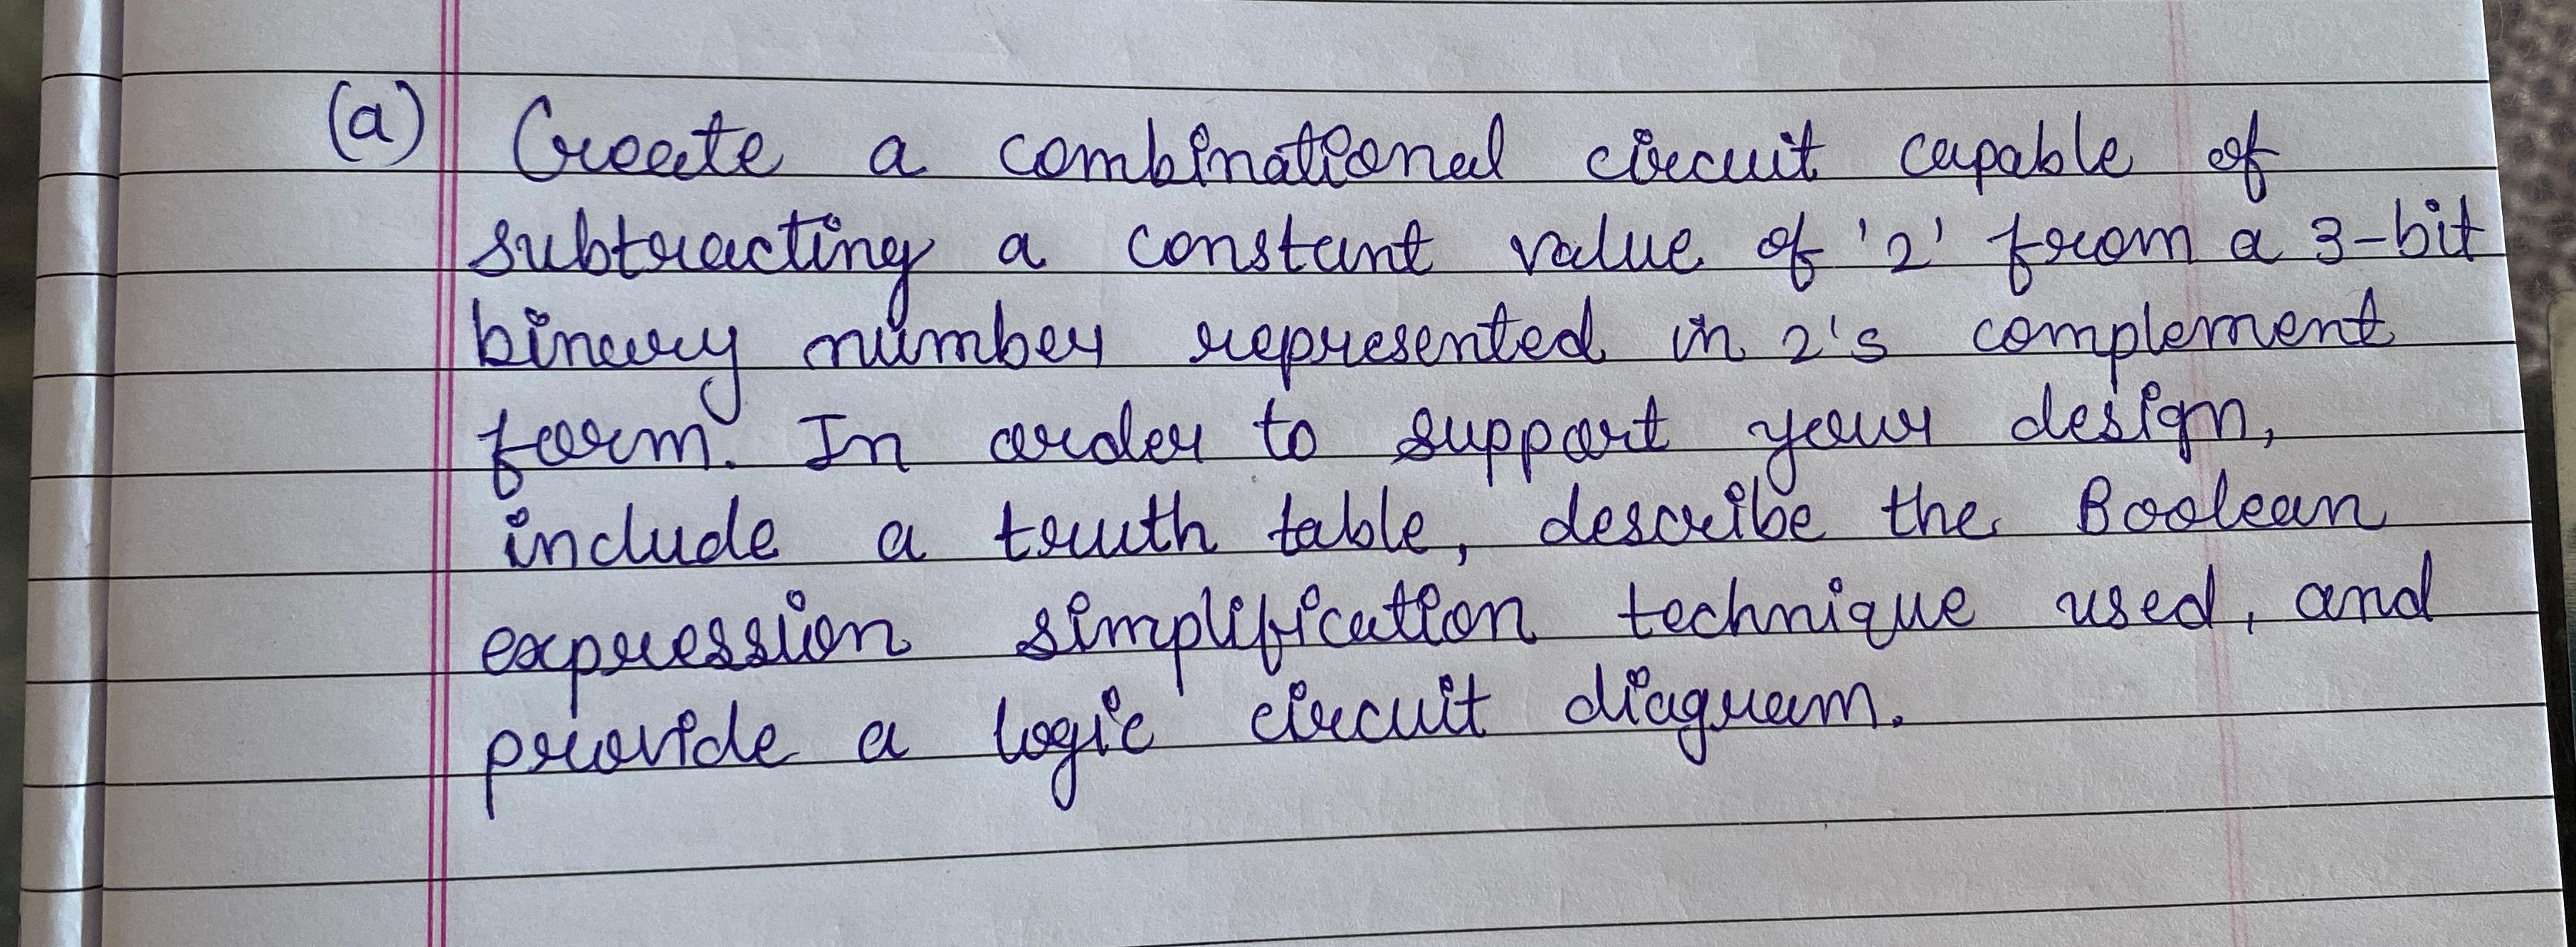 (a) Create a combinational circuit capable of
subtracting a constant value of '2' from a 3-bit
binary number represented in 2's complement
form. In order to support your design,
include a truth table, describe the Boolean
expression simplification technique used, and
provide a logic circuit diagram.